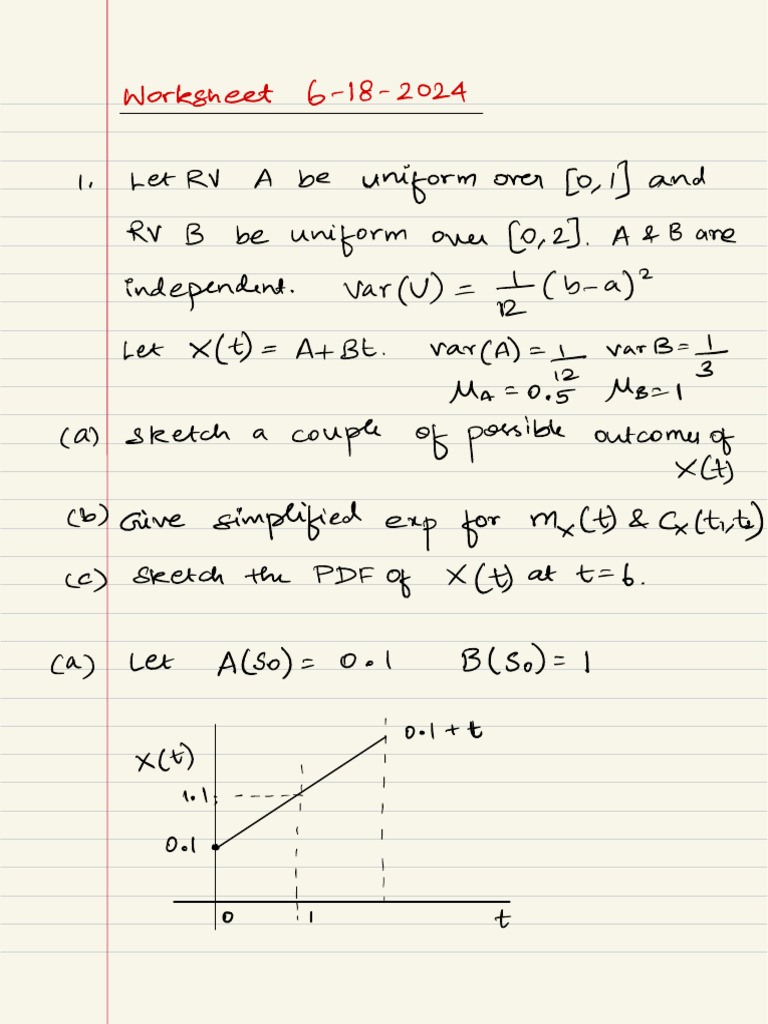 Worksheet 6-18-2024
1. Let RV A be uniform over [0,1] and
RV B be uniform over [0,2]. A & B are
independent. Var(U) = 1/12 (b-a)²
Let X(t) = A+Bt. var(A) = 1/12 var B = 1/3
μ_A = 0.5 μ_B = 1
(a) Sketch a couple of possible outcomes of
X(t)
(b) Give simplified exp for m_X(t) & C_X(t₁,t₂)
(c) Sketch the PDF of X(t) at t=6.
(a) Let A(S₀) = 0.1 B(S₀) = 1
0.1 + t
X(t)
1.1
0.1
0 1 t